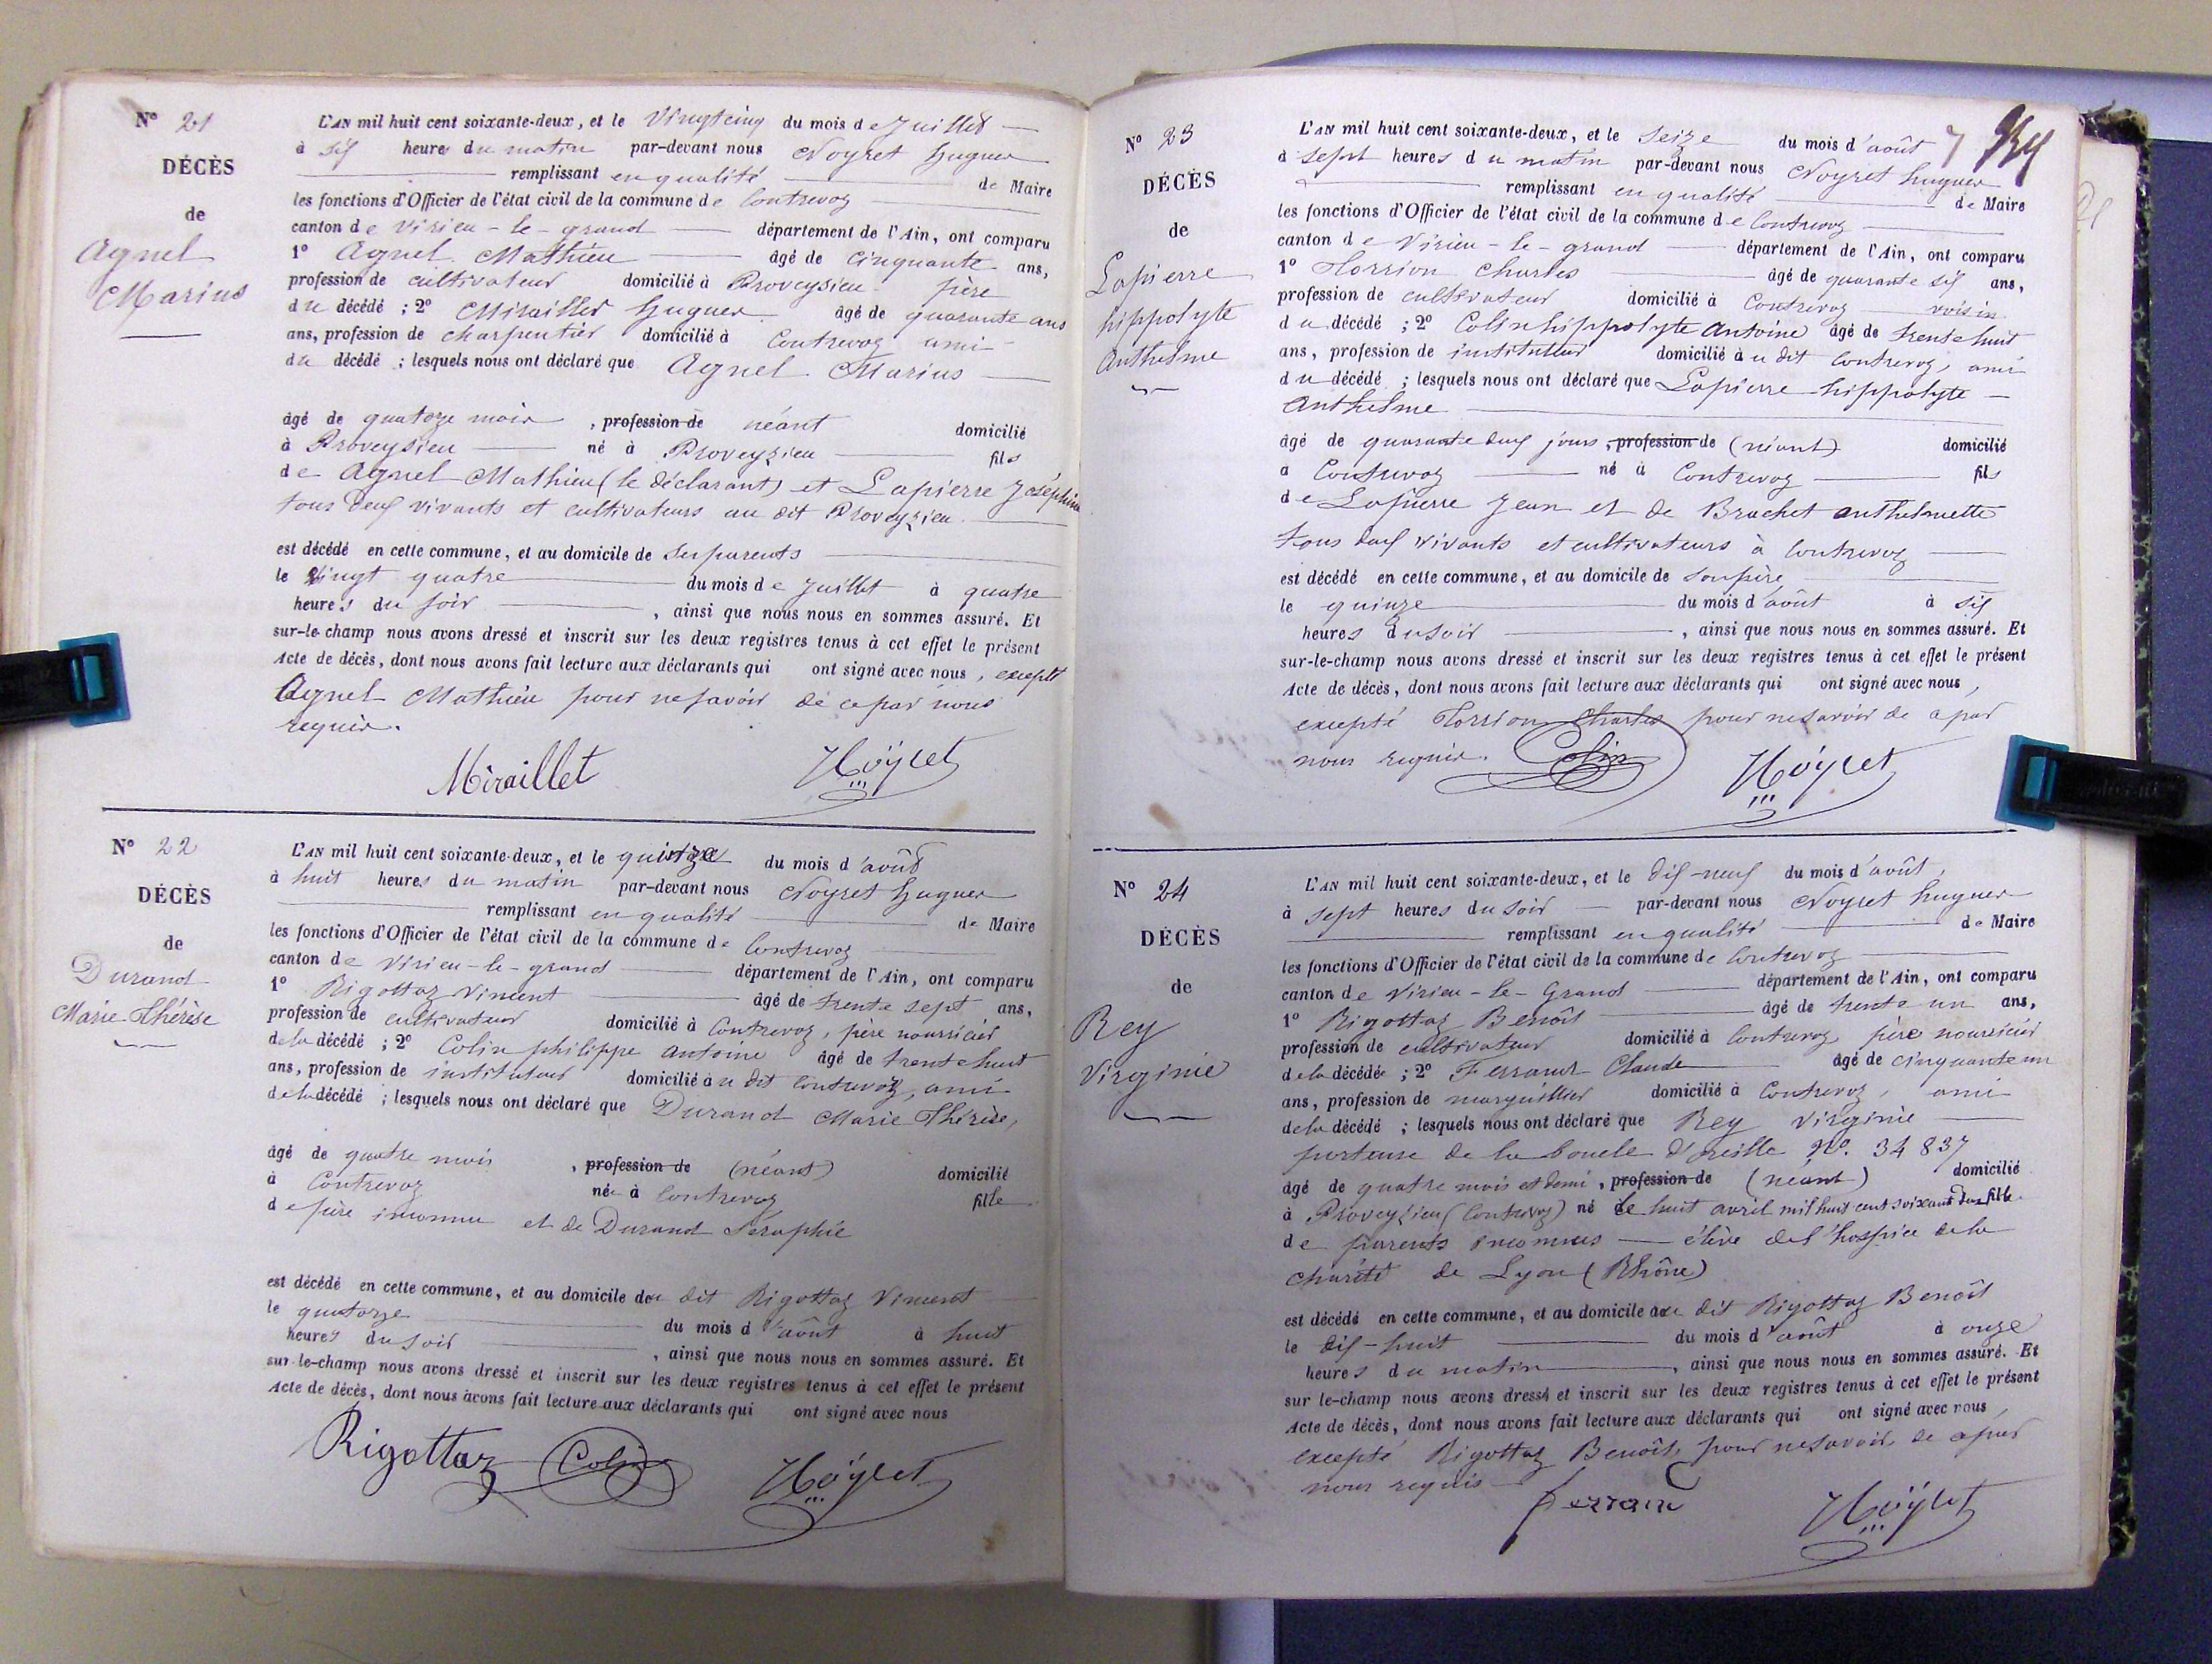 N° 21
DÉCÈS
de
Agnel
Marius
L'AN mil huit cent soixante-deux, et le Vingt cinq du mois de Juillet
à six heures du matin par-devant nous Noyret hugues
remplissant en qualité de Maire
les fonctions d'Officier de l'état civil de la commune de Contrevoz
canton de Virieu-le-grand département de l'Ain, ont comparu
1° Agnel Mathieu âgé de cinquante ans,
profession de cultivateur domicilié à Proveysieu père
du décédé ; 2° Miraillet hugues âgé de quarante ans
ans, profession de charpentier domicilié à Contrevoz ami
du décédé ; lesquels nous ont déclaré que Agnel Marius
âgé de quatoze mois , profession de néant domicilié
à Proveysieu né à Proveyzieu fils
de Agnel Mathieu (le déclarant) et Lapierre Joséphine
tous deux vivants et cultivateurs au dit Proveyzieu
est décédé en cette commune, et au domicile de ses parents
le vingt quatre du mois de Juillet à quatre
heures du soir , ainsi que nous nous en sommes assuré. Et
sur-le-champ nous avons dressé et inscrit sur les deux registres tenus à cet effet le présent
Acte de décès, dont nous avons fait lecture aux déclarants qui ont signé avec nous, excepté
Agnel Mathieu pour ne savoir de ce par nous
requis.
Miraillet Noyret
N° 22
DÉCÈS
de
Durand
Marie Thérèse
L'AN mil huit cent soixante-deux, et le quinze du mois d'août
à huit heures du matin par-devant nous Noyret hugues
remplissant en qualité de Maire
les fonctions d'Officier de l'état civil de la commune de Contrevoz
canton de Virieu-le-grand département de l'Ain, ont comparu
1° Rigottaz Vincent âgé de trente sept ans,
profession de cultivateur domicilié à Contrevoz, père nourricier
de la décédé ; 2° Colin philippe antoine âgé de trente huit
ans, profession de instituteur domicilié à u dit contrevoz, ami
de la décédé ; lesquels nous ont déclaré que Durand Marie Thérèse,
âgé de quatre mois , profession de (néant) domicilié
à Contrevoz née à Contrevoz fille
de père inconnu et de Durand Séraphie
est décédé en cette commune, et au domicile du dit Rigottaz Vincent
le quatorze du mois d'août à huit
heures du soir , ainsi que nous nous en sommes assuré. Et
sur-le-champ nous avons dressé et inscrit sur les deux registres tenus à cet effet le présent
Acte de décès, dont nous avons fait lecture aux déclarants qui ont signé avec nous
Rigottaz Colin Noyret
N° 23
DÉCÈS
de
Lapierre
hippolyte
Anthelme
L'AN mil huit cent soixante-deux, et le seize du mois d'août
à sept heures du matin par-devant nous Noyret hugues
remplissant en qualité de Maire
les fonctions d'Officier de l'état civil de la commune de Contrevoz
canton de Virieu-le-grand département de l'Ain, ont comparu
1° Torrion Charles âgé de quarante six ans,
profession de cultivateur domicilié à Contrevoz voisin
du décédé ; 2° Colin hippolyte Antoine âgé de trente huit
ans, profession de instituteur domicilié à u dit Contrevoz, ami
du décédé ; lesquels nous ont déclaré que Lapierre hippolyte
Anthelme
âgé de quarante deux jours, profession de (néant) domicilié
à Contrevoz né à Contrevoz fils
de Lapierre Jean et de Brachet anthelmette
tous deux vivants et cultivateurs à Contrevoz
est décédé en cette commune, et au domicile de son père
le quinze du mois d'août à six
heures du soir , ainsi que nous nous en sommes assuré. Et
sur-le-champ nous avons dressé et inscrit sur les deux registres tenus à cet effet le présent
Acte de décès, dont nous avons fait lecture aux déclarants qui ont signé avec nous,
excepté Torrion Charles pour ne savoir de ce par
nous requis. Colin Noyret
N° 24
DÉCÈS
de
Rey
Virginie
L'AN mil huit cent soixante-deux, et le dix-neuf du mois d'août,
à sept heures du soir par-devant nous Noyret hugues
remplissant en qualité de Maire
les fonctions d'Officier de l'état civil de la commune de Contrevoz
canton de Virieu-le-Grand département de l'Ain, ont comparu
1° Rigottaz Benoît âgé de trente un ans,
profession de cultivateur domicilié à Contrevoz, père nourricier
de la décédée ; 2° Ferrand Claude âgé de cinquante un
ans, profession de marguillier domicilié à Contrevoz, ami
de la décédé ; lesquels nous ont déclaré que Rey Virginie
porteuse de la boucle d'oreille N°. 34 837
âgé de quatre mois et demi, profession de (néant) domicilié
à Proveyzieu (Contrevoz) né le huit avril mil huit cent soixante deux fille
de parents inconnus élève de l'hospice de la
charité de Lyon (Rhône)
est décédé en cette commune, et au domicile du dit Rigottaz Benoît
le dix-huit du mois d'août à onze
heures du matin , ainsi que nous nous en sommes assuré. Et
sur le-champ nous avons dressé et inscrit sur les deux registres tenus à cet effet le présent
Acte de décès, dont nous avons fait lecture aux déclarants qui ont signé avec nous,
excepté Rigottaz Benoît, pour ne savoir de ce par
nous requis
Ferran Noyret